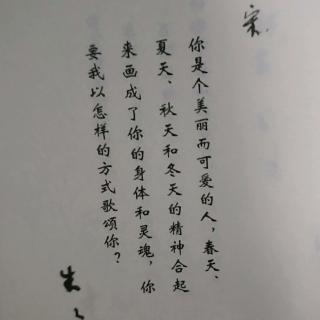 宋
你是个美丽而可爱的人，春天、
夏天、秋天和冬天的精神合起
来画成了你的身体和灵魂，你
要我以怎样的方式歌颂你？
朱